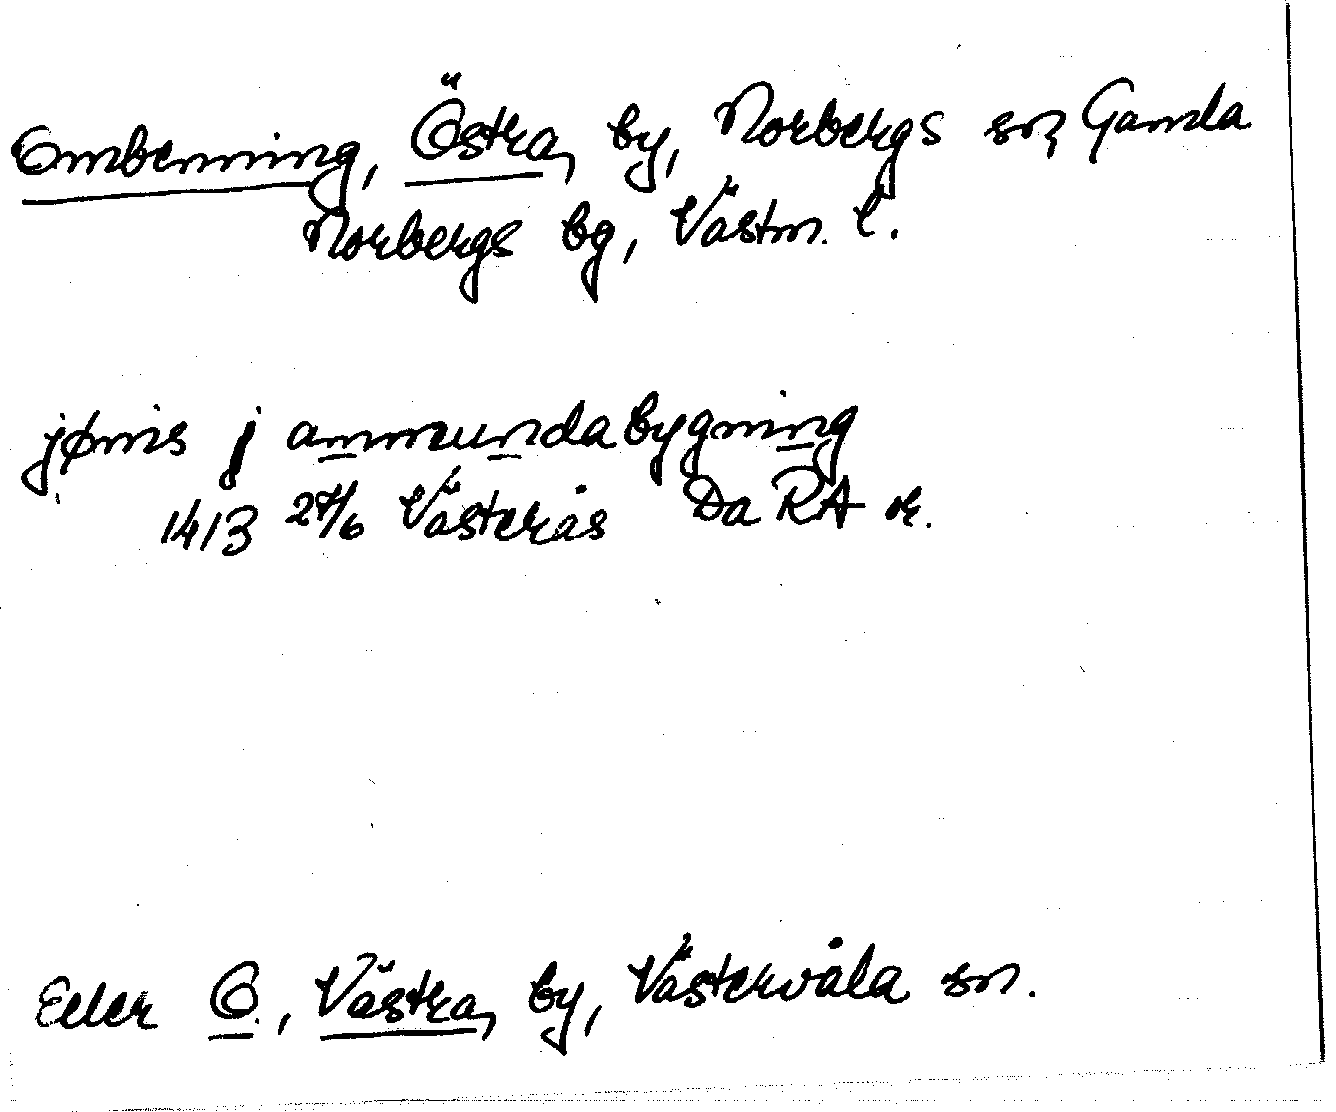 Ombenning, Östra, by, Norbergs sn, Gamla
Norbergs bg, Västm. l.
jønis j ammundabygning
1413 27/6 Västerås Da RA or.
Eller O., Västra, by, Västervåla sn.